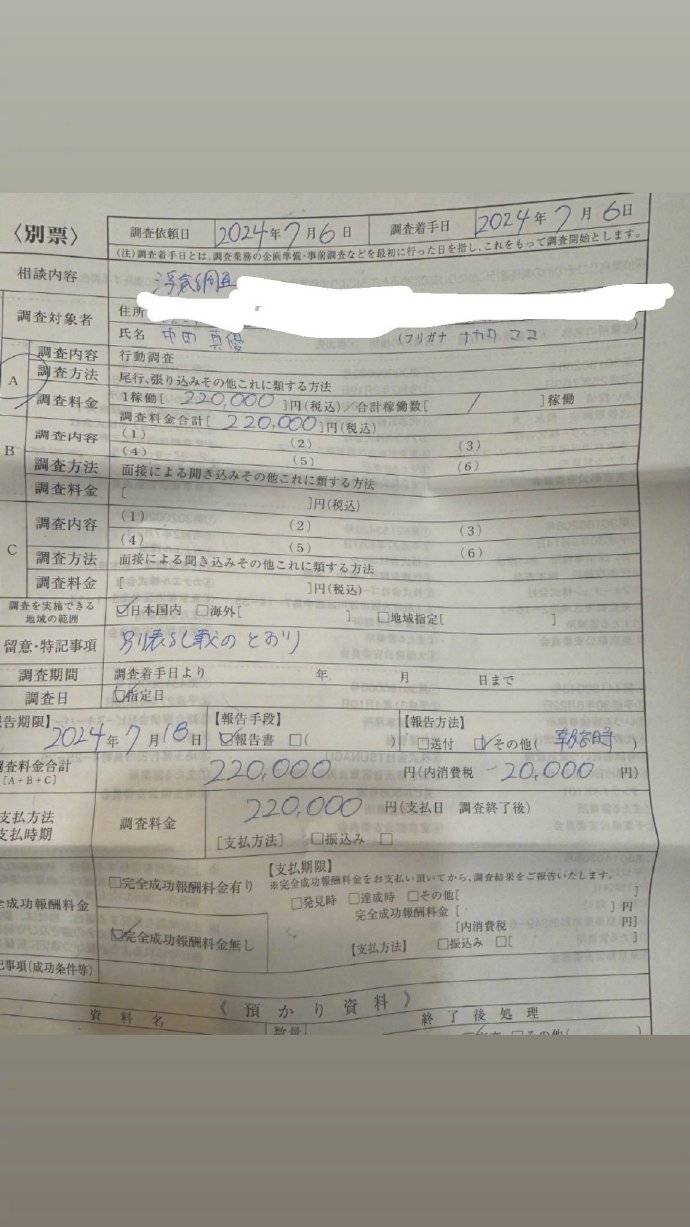 〈別票〉
調査依頼日 2024年7月6日 調査着手日 2024年7月6日
(注)調査着手日とは、調査業務の企画準備・事前調査などを最初に行った日を指し、これをもって調査開始とします。
相談内容 浮気調査
調査対象者 住所
氏名 中田 真優 (フリガナ ナカタ ママコ )
A 調査内容 行動調査
調査方法 尾行、張り込みその他これに類する方法
調査料金 1稼働[ 220,000 ]円(税込)/合計稼働数[ / ]稼働
調査料金合計[ 220,000 ]円(税込)
B 調査内容 (1) (2) (3)
(4) (5) (6)
調査方法 面接による聞き込みその他これに類する方法
調査料金 [ ]円(税込)
C 調査内容 (1) (2) (3)
(4) (5) (6)
調査方法 面接による聞き込みその他これに類する方法
調査料金 [ ]円(税込)
調査を実施できる地域の範囲 ☑日本国内 □海外[ ] □地域指定[ ]
留意・特記事項 別表記載のとおり
調査期間 調査着手日より 年 月 日まで
調査日 □指定日
報告期限】 【報告手段】 【報告方法】
2024年7月18日 ☑報告書 □( ) □送付 ☑その他( )
調査料金合計 [A+B+C] 220,000 円(内消費税 20,000 円)
支払方法 支払時期 調査料金 220,000 円(支払日 調査終了後)
[支払方法] □振込み □
完全成功報酬料金 □完全成功報酬料金有り 【支払期限】
※完全成功報酬料金をお支払い頂いてから、調査結果をご報告いたします。
□発見時 □達成時 □その他[ ]
完全成功報酬料金 [ ]円
[内消費税 円]
☑完全成功報酬料金無し 【支払方法】 □振込み □[ ]
記事項[成功条件等)
《 預かり資料 》
資料名 数量 終了後処理
□その他(